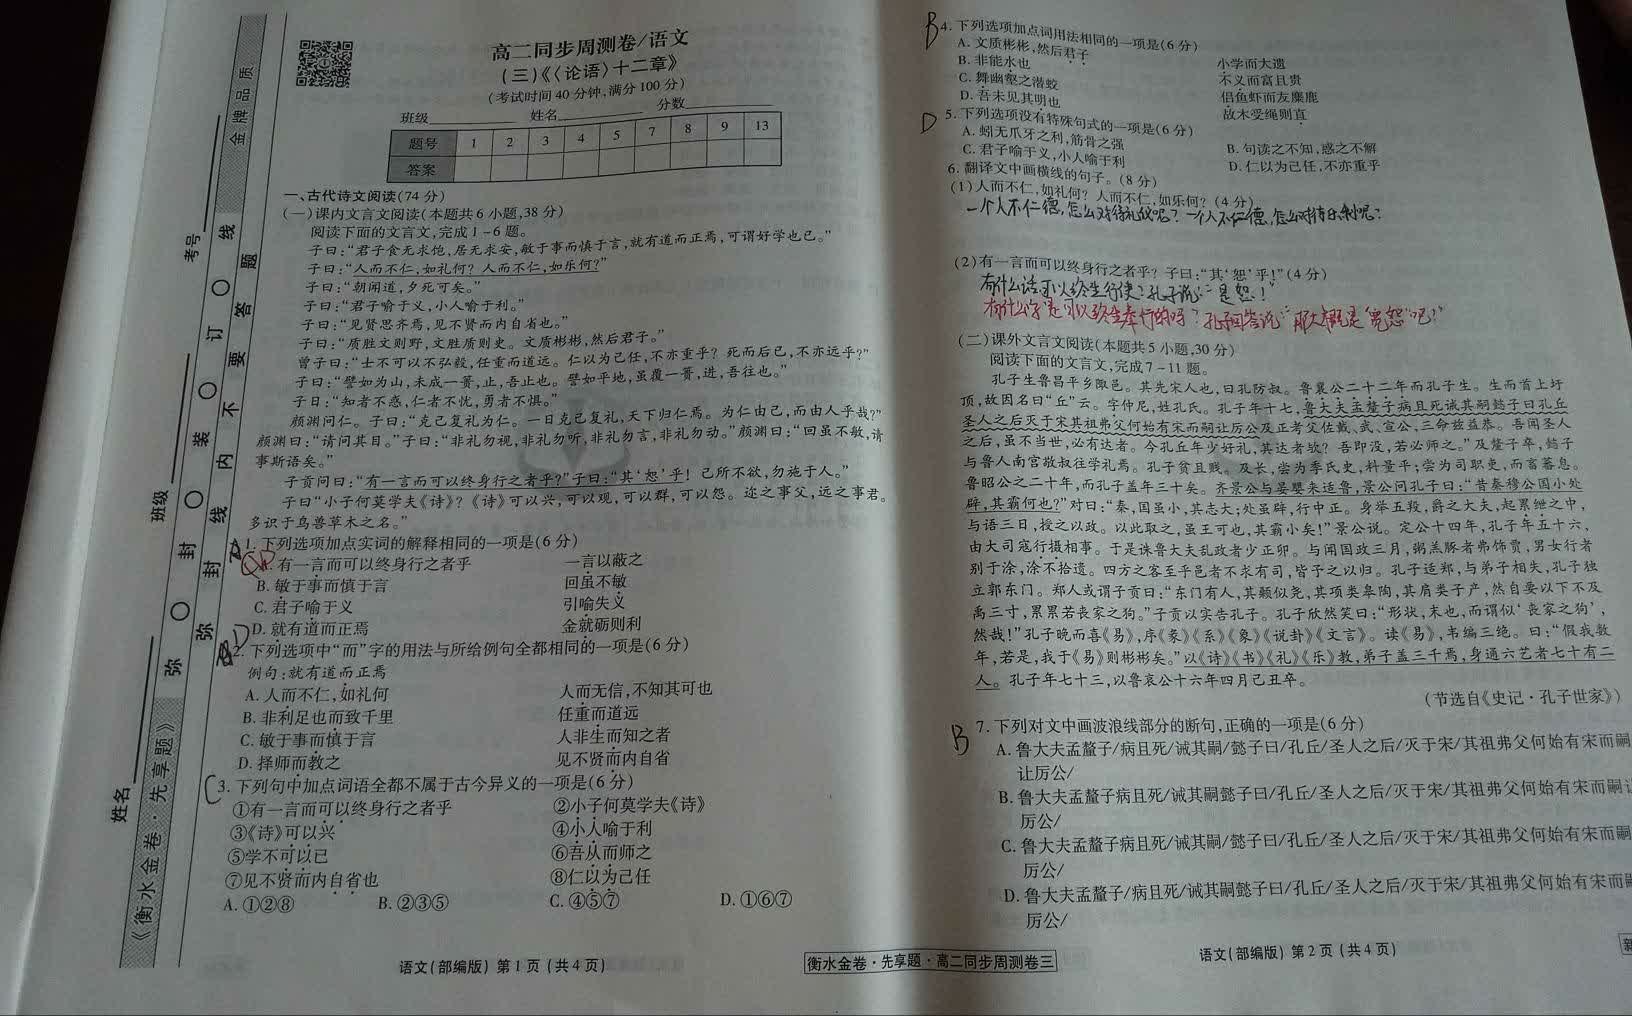 高二同步周测卷/语文
(三)《〈论语〉十二章》
(考试时间40分钟,满分100分)
班级 姓名 分数
题号 1 2 3 4 5 7 8 9 13
答案
一、古代诗文阅读(74分)
(一)课内文言文阅读(本题共6小题,38分)
阅读下面的文言文,完成1-6题。
子曰:“君子食无求饱,居无求安,敏于事而慎于言,就有道而正焉,可谓好学也已。”
子曰:“人而不仁,如礼何?人而不仁,如乐何?”
子曰:“朝闻道,夕死可矣。”
子曰:“君子喻于义,小人喻于利。”
子曰:“见贤思齐焉,见不贤而内自省也。”
子曰:“质胜文则野,文胜质则史。文质彬彬,然后君子。”
曾子曰:“士不可以不弘毅,任重而道远。仁以为己任,不亦重乎?死而后已,不亦远乎?”
子曰:“譬如为山,未成一篑,止,吾止也。譬如平地,虽覆一篑,进,吾往也。”
子曰:“知者不惑,仁者不忧,勇者不惧。”
颜渊问仁。子曰:“克己复礼为仁。一日克己复礼,天下归仁焉。为仁由己,而由人乎哉?”
颜渊曰:“请问其目。”子曰:“非礼勿视,非礼勿听,非礼勿言,非礼勿动。”颜渊曰:“回虽不敏,请
事斯语矣。”
子贡问曰:“有一言而可以终身行之者乎?”子曰:“其‘恕’乎!己所不欲,勿施于人。”
子曰“小子何莫学夫《诗》?《诗》可以兴,可以观,可以群,可以怨。迩之事父,远之事君。
多识于鸟兽草木之名。”
1.下列选项加点实词的解释相同的一项是(6分)
A.有一言而可以终身行之者乎 一言以蔽之
B.敏于事而慎于言 回虽不敏
C.君子喻于义 引喻失义
D.就有道而正焉 金就砺则利
D
2.下列选项中“而”字的用法与所给例句全都相同的一项是(6分)
例句:就有道而正焉
A.人而不仁,如礼何 人而无信,不知其可也
B.非利足也而致千里 任重而道远
C.敏于事而慎于言 人非生而知之者
D.择师而教之 见不贤而内自省
C 3.下列句中加点词语全都不属于古今异义的一项是(6分)
①有一言而可以终身行之者乎 ②小子何莫学夫《诗》
③《诗》可以兴 ④小人喻于利
⑤学不可以已 ⑥吾从而师之
⑦见不贤而内自省也 ⑧仁以为己任
A.①②⑧ B.②③⑤ C.④⑤⑦ D.①⑥⑦
语文(部编版) 第1页(共4页)
B 4.下列选项加点词用法相同的一项是(6分)
A.文质彬彬,然后君子 小学而大遗
B.非能水也 不义而富且贵
C.舞幽壑之潜蛟 侣鱼虾而友麋鹿
D.吾未见其明也 故木受绳则直
D 5.下列选项没有特殊句式的一项是(6分)
A.蚓无爪牙之利,筋骨之强 B.句读之不知,惑之不解
C.君子喻于义,小人喻于利 D.仁以为己任,不亦重乎
6.翻译文中画横线的句子。(8分)
(1)人而不仁,如礼何?人而不仁,如乐何?(4分)
一个人不仁德,怎么对待礼仪呢?一个人不仁德,怎么对待乐制呢?
(2)有一言而可以终身行之者乎?子曰:“其‘恕’乎!”(4分)
有什么话可以终生行使?孔子说:“是恕!”
有什么字是可以终生奉行的吗?孔子回答说:“那大概是“宽恕”吧?”
(二)课外文言文阅读(本题共5小题,30分)
阅读下面的文言文,完成7-11题。
孔子生鲁昌平乡陬邑。其先宋人也,曰孔防叔。鲁襄公二十二年而孔子生。生而首上圩
顶,故因名曰“丘”云。字仲尼,姓孔氏。孔子年十七,鲁大夫孟釐子病且死诫其嗣懿子曰孔丘
圣人之后灭于宋其祖弗父何始有宋而嗣让厉公及正考父佐戴、武、宣公,三命兹益恭。吾闻圣人
之后,虽不当世,必有达者。今孔丘年少好礼,其达者欤?吾即没,若必师之。”及釐子卒,懿子
与鲁人南宫敬叔往学礼焉。孔子贫且贱。及长,尝为季氏史,料量平;尝为司职吏,而畜蕃息。
鲁昭公之二十年,而孔子盖年三十矣。齐景公与晏婴来适鲁,景公问孔子曰:“昔秦穆公国小处
辟,其霸何也?”对曰:“秦,国虽小,其志大;处虽辟,行中正。身举五羖,爵之大夫,起累绁之中,
与语三日,授之以政。以此取之,虽王可也,其霸小矣!”景公说。定公十四年,孔子年五十六,
由大司寇行摄相事。于是诛鲁大夫乱政者少正卯。与闻国政三月,粥羔豚者弗饰贾,男女行者
别于涂,涂不拾遗。四方之客至乎邑者不求有司,皆予之以归。孔子适郑,与弟子相失,孔子独
立郭东门。郑人或谓子贡曰:“东门有人,其颡似尧,其项类皋陶,其肩类子产,然自要以下不及
禹三寸,累累若丧家之狗。”子贡以实告孔子。孔子欣然笑曰:“形状,末也,而谓似‘丧家之狗’,
然哉!”孔子晚而喜《易》,序《彖》《系》《象》《说卦》《文言》。读《易》,韦编三绝。曰:“假我数
年,若是,我于《易》则彬彬矣。”以《诗》《书》《礼》《乐》教,弟子盖三千焉,身通六艺者七十有二
人。孔子年七十三,以鲁哀公十六年四月己丑卒。
(节选自《史记·孔子世家》)
B 7.下列对文中画波浪线部分的断句,正确的一项是(6分)
A.鲁大夫孟釐子/病且死/诫其嗣/懿子曰/孔丘/圣人之后/灭于宋/其祖弗父何始有宋而嗣
让厉公/
B.鲁大夫孟釐子病且死/诫其嗣懿子曰/孔丘/圣人之后/灭于宋/其祖弗父何始有宋而嗣让
厉公/
C.鲁大夫孟釐子病且死/诫其嗣/懿子曰/孔丘/圣人之后/灭于宋/其祖弗父何始有宋而嗣
厉公/
D.鲁大夫孟釐子/病且死/诫其嗣懿子曰/孔丘/圣人之后/灭于宋/其祖弗父何始有宋而嗣
厉公/
衡水金卷·先享题·高二同步周测卷三
语文(部编版) 第2页(共4页)
金牌品质
考号
班级
姓名
弥 封 装 订 线
弥 封 线 内 不 要 答 题
《衡水金卷·先享题》